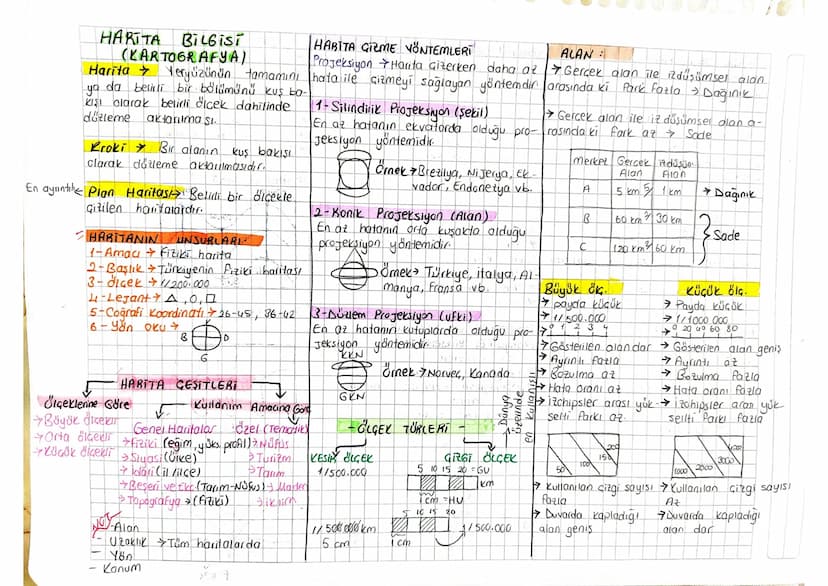 HARİTA BİLGİSİ
(KARTOGRAFYA)
Harita → Yeryüzünün tamamını
ya da belirli bir bölümünü kuş ba-
kışı olarak belirli ölçek dahilinde
düzleme aktarılması.
Kroki → Bir alanın kuş bakışı
olarak düzleme aktarılmasıdır.
En ayrıntılı ← Plan Haritası → Belirli bir ölçekle
çizilen haritalardır.
HARİTANIN UNSURLARI
1-Amacı → Fiziki harita
2-Başlık → Türkiyenin fiziki haritası
3-Ölçek → 1/200.000
4-Lejant → △, O, □
5-Coğrafi Koordinatı → 26-45, 36-42
6-Yön oku →
B D
G
HARİTA ÇEŞİTLERİ
Ölçeklerine Göre
→ Büyük ölçekli
→ Orta ölçekli
→ Küçük ölçekli
Kullanım Amacına Göre
Genel Haritalar Özel (Tematik)
→ Fiziki (eğim, yüks. profil) → Nüfus
→ Siyasi (Ülke) → Turizm
→ İdari (il ilçe) → Tarım
→ Beşeri ve Eko (Tarım-Nüfus) → Maden
→ Topografya → (Fiziki) → iklim
NOT
- Alan
- Uzaklık → Tüm haritalarda
- Yön
- Konum
HARİTA ÇİZME YÖNTEMLERİ
Projeksiyon → Harita çizerken daha az
hata ile çizmeyi sağlayan yöntemdir.
1-Silindirik Projeksiyon (şekil)
En az hatanın ekvatorda olduğu pro-
jeksiyon yöntemidir.
Örnek → Brezilya, Nijerya, Ek-
vador, Endonezya vb.
2-Konik Projeksiyon (Alan)
En az hatanın orta kuşakta olduğu
projeksiyon yöntemidir.
Örnek → Türkiye, italya, Al-
manya, Fransa vb.
3-Düzlem Projeksiyon (ufki)
En az hatanın kutuplarda olduğu pro-
jeksiyon yöntemidir.
KKN
Örnek → Norveç, Kanada
GKN
Dünya
üzerinde
en kullanışlı
ÖLÇEK TÜRLERİ
KESİR ÖLÇEK
1/500.000
1/500000 km
5 cm
ÇİZGİ ÖLÇEK
5 10 15 20 = GU
km
1 cm = HU
5 10 15 20
1 cm
1/500.000
ALAN :
→ Gerçek alan ile izdüşümsel alan
arasında ki fark fazla → Dağınık
→ Gerçek alan ile izdüşümsel alan a-
rasında ki fark az → Sade
Merkez Gerçek Alan İzdüşüm Alan
A 5 km² 1 km → Dağınık
B 60 km² 30 km
C 120 km² 60 km
Sade
Büyük ölç.
→ payda küçük
→ 1/500.000
→ 0 1 2 3 4
→ Gösterilen alan dar
→ Ayrıntı fazla
→ Bozulma az
→ Hata oranı az
→ İzohipsler arası yük-
selti farkı az.
50 100 150 200
→ Kullanılan çizgi sayısı
fazla
→ Duvarda kapladığı
alan geniş
Küçük ölç.
→ Payda küçük
→ 1/1000.000
→ 0 20 40 60 80
→ Gösterilen alan geniş
→ Ayrıntı az
→ Bozulma fazla
→ Hata oranı fazla
→ İzohipsler arası yük
selti farkı fazla
1000 2000 3000 4000
→ Kullanılan çizgi sayısı
Az
→ Duvarda kapladığı
alan dar